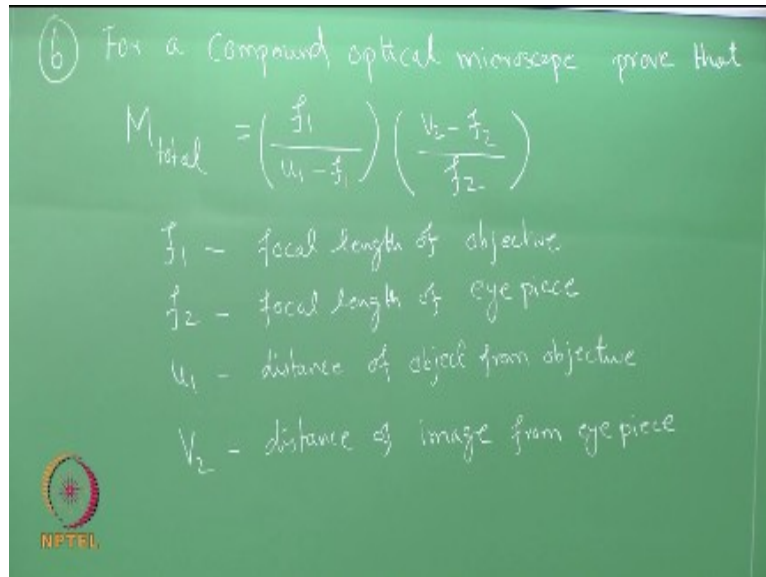 ⑥ For a Compound optical microscope prove that
M_total = (f₁ / (u₁ - f₁)) ((V₂ - f₂) / f₂)
f₁ - focal length of objective
f₂ - focal length of eye piece
u₁ - distance of object from objective
V₂ - distance of image from eye piece
NPTEL